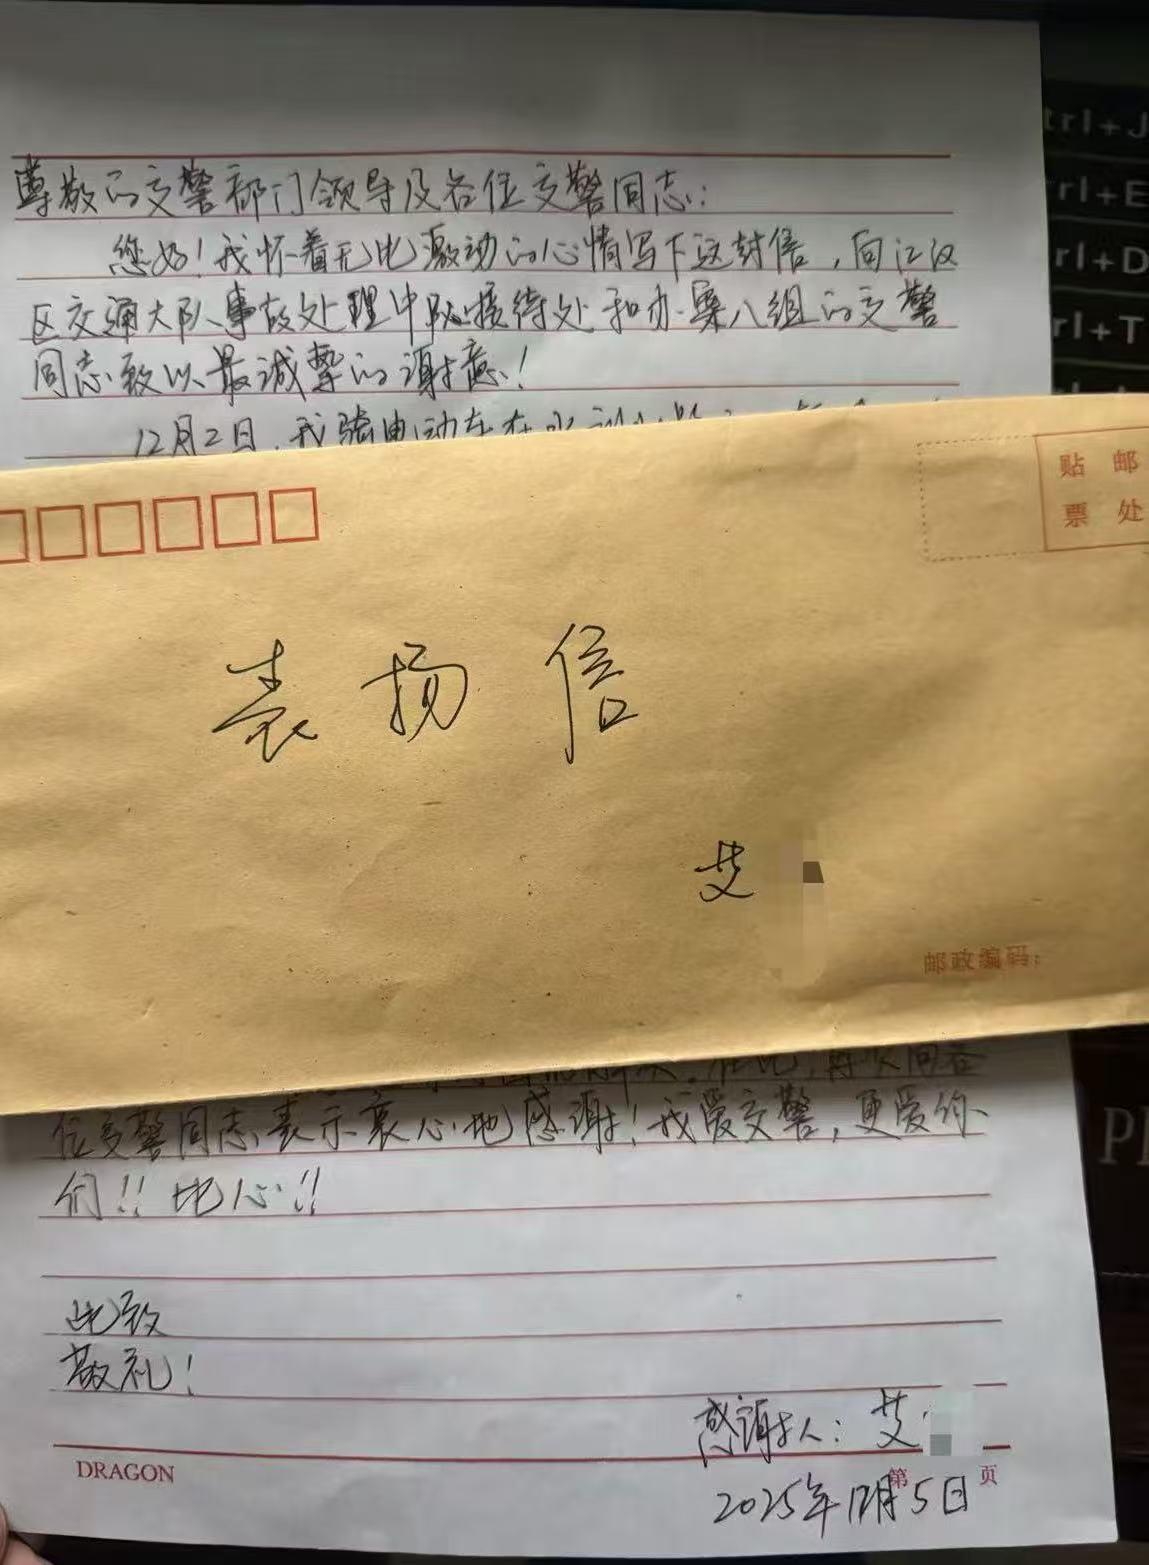 尊敬的交警部门领导及各位交警同志:
您好!我怀着无比激动的心情写下这封信,向江汉
区交通大队事故处理中队接待处和办案八组的交警
同志致以最诚挚的谢意!
12月2日,我骑电动车在
贴 邮
票 处
表扬信
艾
邮政编码:
再次向各
位交警同志表示衷心地感谢!我爱交警,更爱你
们!!比心!!
此致
敬礼!
感谢人:艾
DRAGON
第 页
2025年12月5日
trl+J
trl+E
rl+D
rl+T